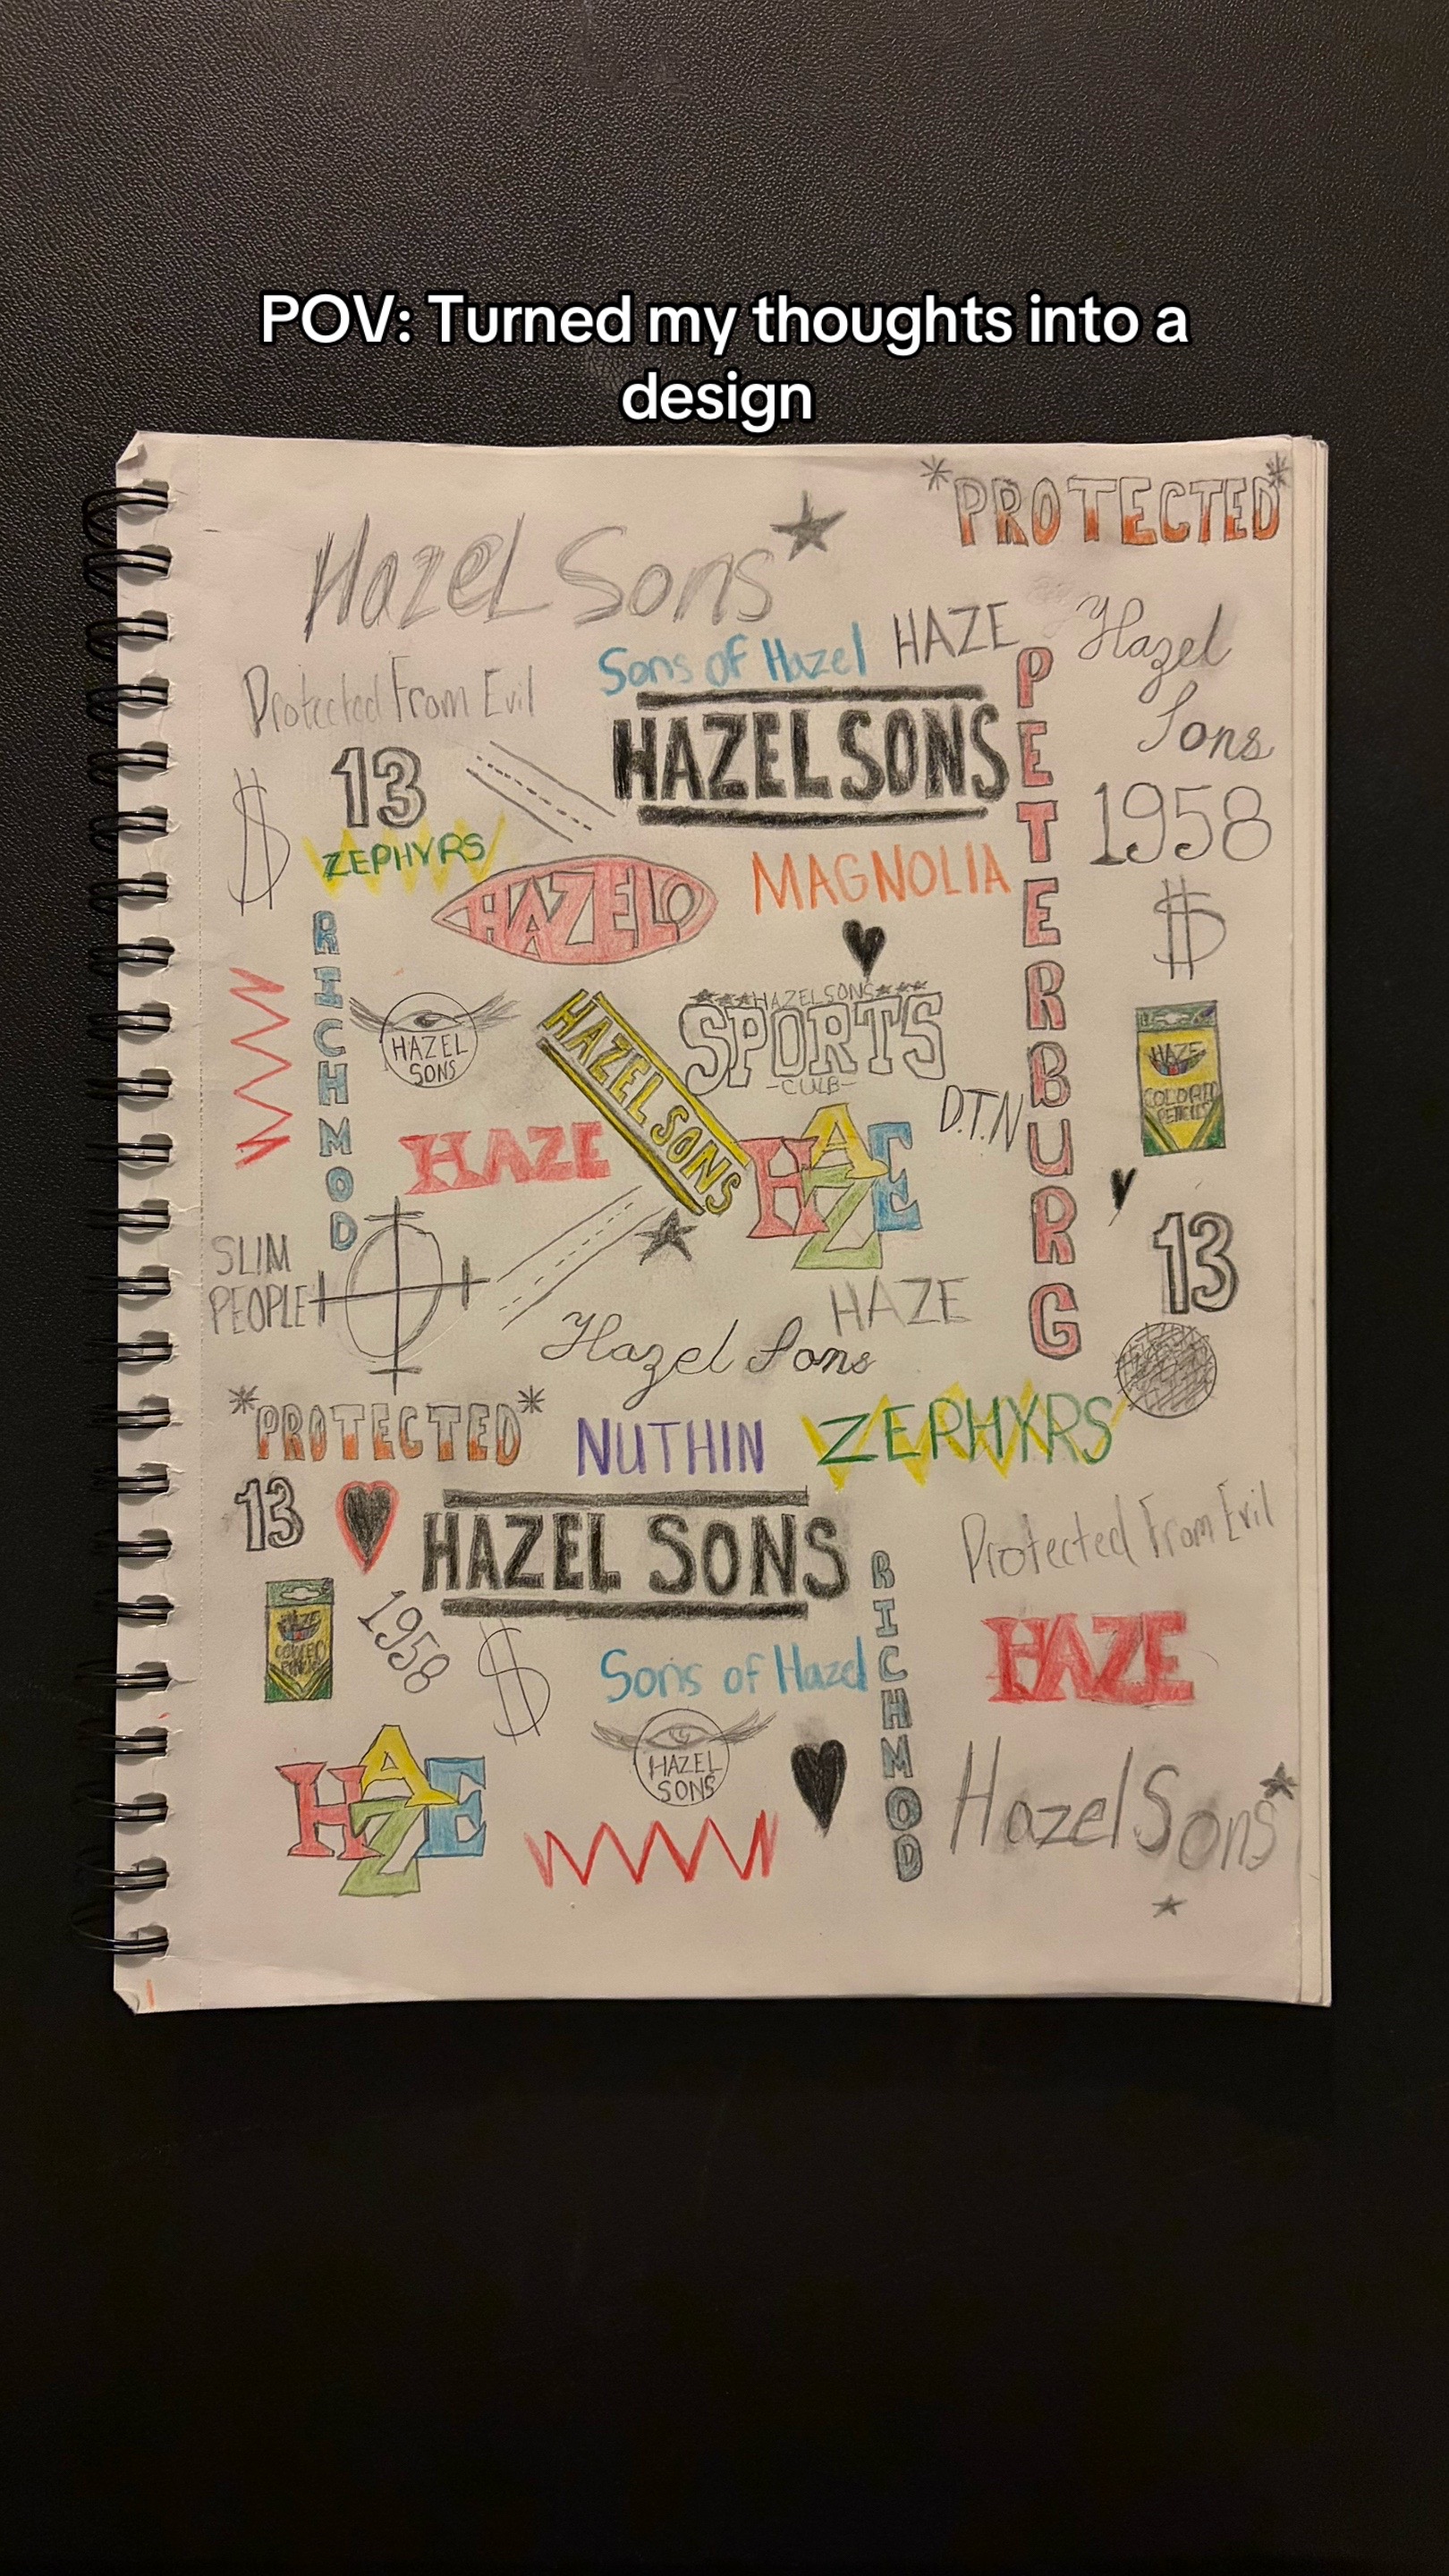 POV: Turned my thoughts into a
design
*PROTECTED*
Hazel Sons
HAZE
Hazel
Sons
Sons of Hazel
Protected From Evil
HAZELSONS
PETERBURG
13
1958
$
ZEPHYRS
MAGNOLIA
HAZELO
$
RICHMOD
HAZELSONS
SPORTS
-CULB-
HAZEL
SONS
HAZEL SONS
HAZE
COLORED
PENCILS
D.T.N
HAZE
HAZE
SLIM
PEOPLE
13
HAZE
Hazel Sons
*PROTECTED*
NUTHIN
ZEPHYRS
13
HAZEL SONS
Protected From Evil
RICHMOD
HAZE
COLORED
PENCILS
1958
$
Sons of Hazel
HAZE
HAZEL
SONS
HAZE
Hazel Sons